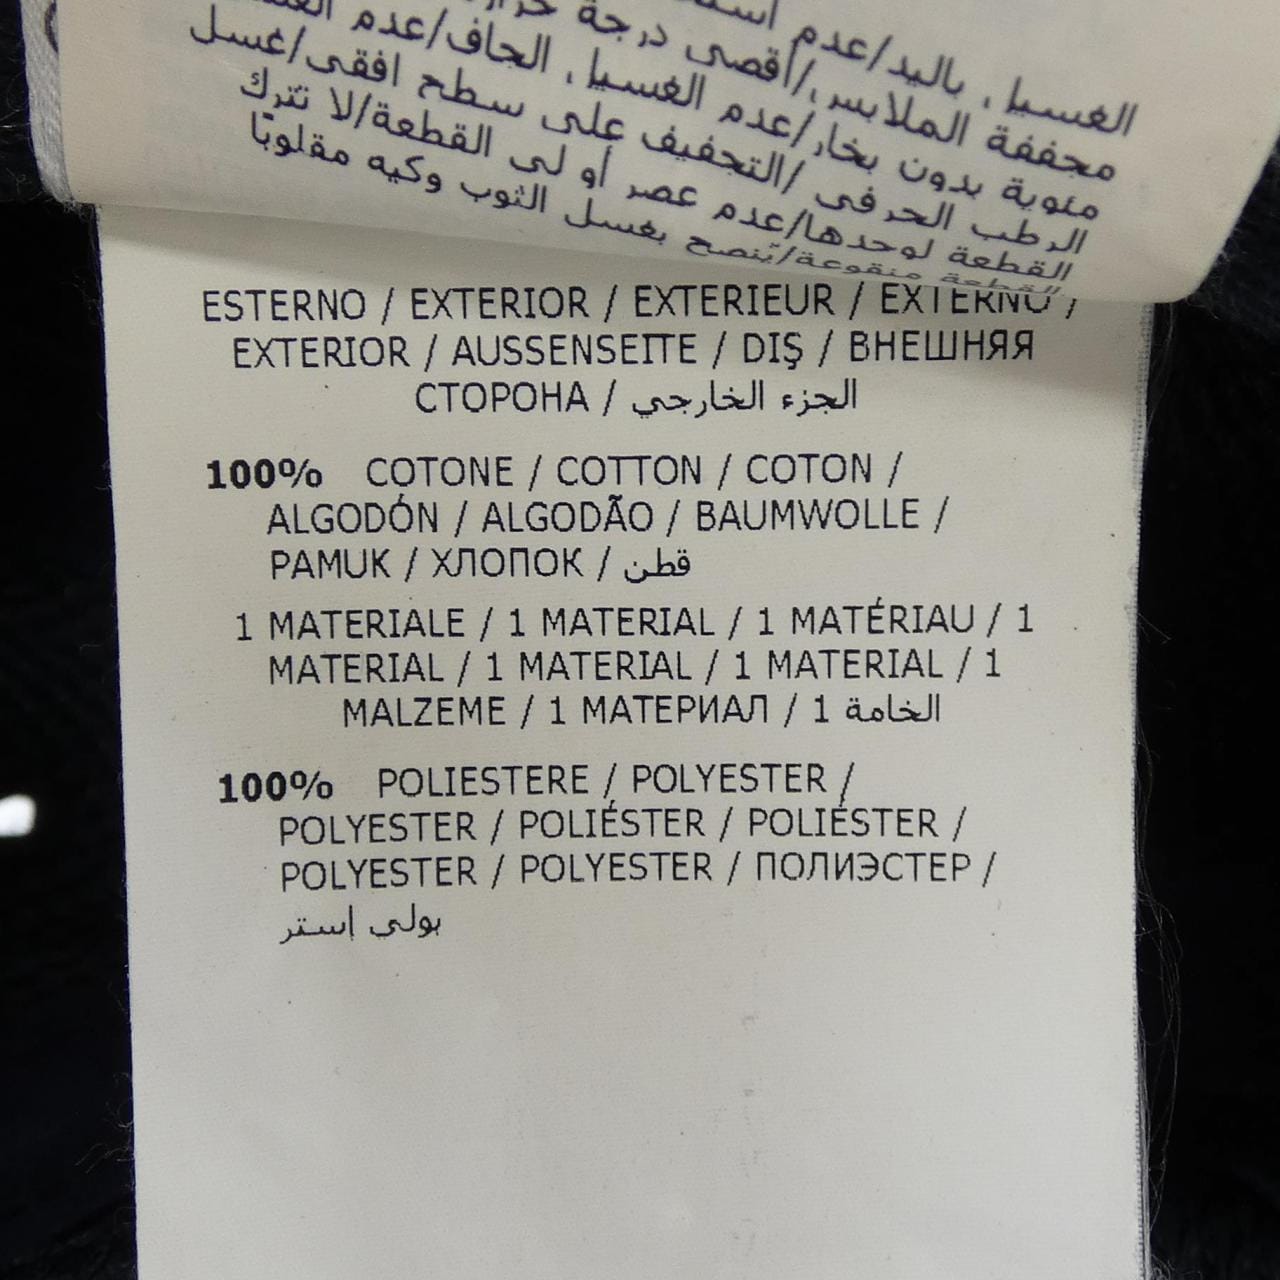 الغسيل باليد/عدم
مجففة الملابس/أقصى درجة
مئوية بدون بخار/عدم الغسيل الجاف/عدم
الرطب الحرفي/التجفيف على سطح افقي/غسل
القطعة لوحدها/عدم عصر أو لى القطعة/لا تترك
القطعة منقوعة/يُنصح بغسل الثوب وكيه مقلوبًا
ESTERNO / EXTERIOR / EXTERIEUR / EXTERNO /
EXTERIOR / AUSSENSEITE / DIŞ / ВНЕШНЯЯ
СТОРОНА / الجزء الخارجي
100% COTONE / COTTON / COTON /
ALGODÓN / ALGODÃO / BAUMWOLLE /
PAMUK / ХЛОПОК / قطن
1 MATERIALE / 1 MATERIAL / 1 MATÉRIAU / 1
MATERIAL / 1 MATERIAL / 1 MATERIAL / 1
MALZEME / 1 МАТЕРИАЛ / 1 الخامة
100% POLIESTERE / POLYESTER /
POLYESTER / POLIÉSTER / POLIÉSTER /
POLYESTER / POLYESTER / ПОЛИЭСТЕР /
بولي إستر